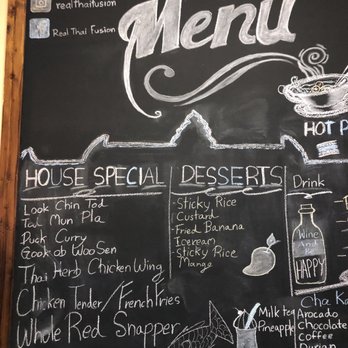 realthaifusion
Real Thai Fusion
Menu
HOT P
HOUSE SPECIAL
Look Chin Tod
Tal Mun Pla
Duck Curry
Goong ob Woo Sen
Thai Herb Chicken Wing
Chicken Tender/French Fries
Whole Red Snapper
DESSERTS
-Sticky Rice
Custard
-Fried Banana
Icecream
-Sticky Rice
Mango
Drink
Wine
And
Be
HAPPY
Milk tea
Pineapple
Cha
Avocado
Chocolate
Coffee
Durian